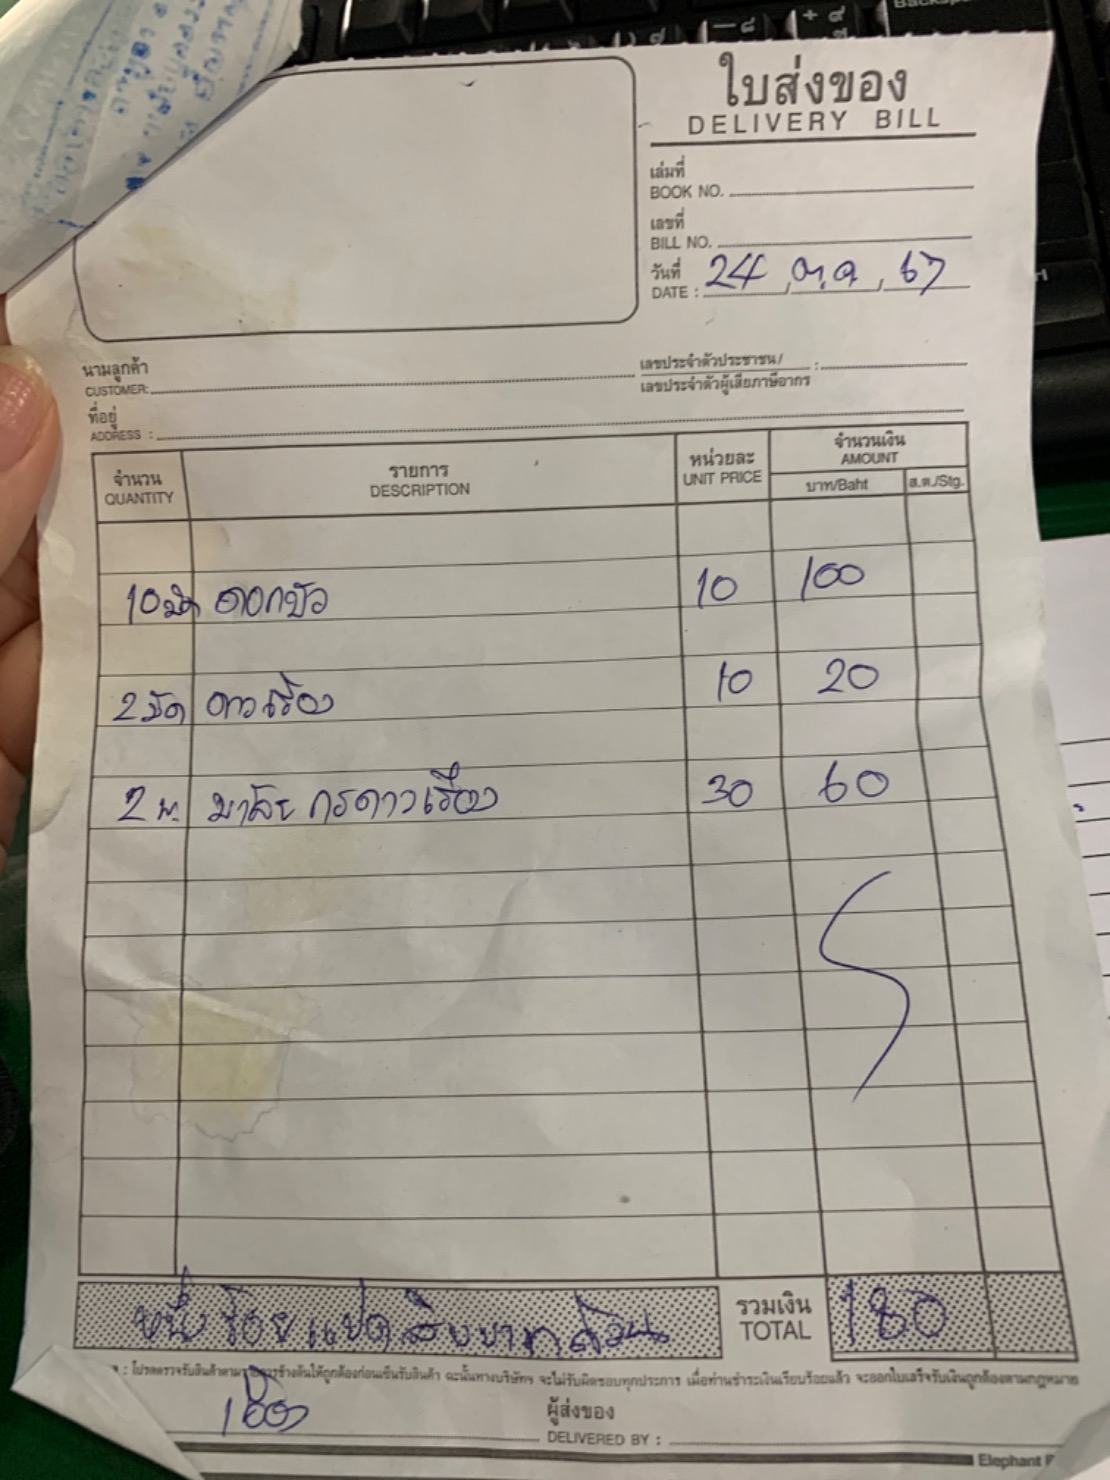 ใบส่งของ
DELIVERY BILL
เล่มที่
BOOK NO.
เลขที่
BILL NO.
วันที่
DATE : 24 ต.ค. 67
นามลูกค้า
CUSTOMER:
เลขประจำตัวประชาชน/ :
เลขประจำตัวผู้เสียภาษีอากร
ที่อยู่
ADDRESS :
จำนวน รายการ หน่วยละ จำนวนเงิน
QUANTITY DESCRIPTION UNIT PRICE AMOUNT
บาท/Baht ส.ต./Stg.
10 มัด ดอกบัว 10 100
2 มัด ดาวเรือง 10 20
2 พ. มาลัย กรดาวเรือง 30 60
หนึ่งร้อยแปดสิบบาทถ้วน รวมเงิน 180
TOTAL
: โปรดตรวจรับสินค้าตามรายการข้างต้นให้ถูกต้องก่อนเซ็นรับสินค้า ฉะนั้นทางบริษัทฯ จะไม่รับผิดชอบทุกประการ เมื่อท่านชำระเงินเรียบร้อยแล้ว จะออกใบเสร็จรับเงินถูกต้องตามกฎหมาย
ผู้ส่งของ
DELIVERED BY :
Elephant